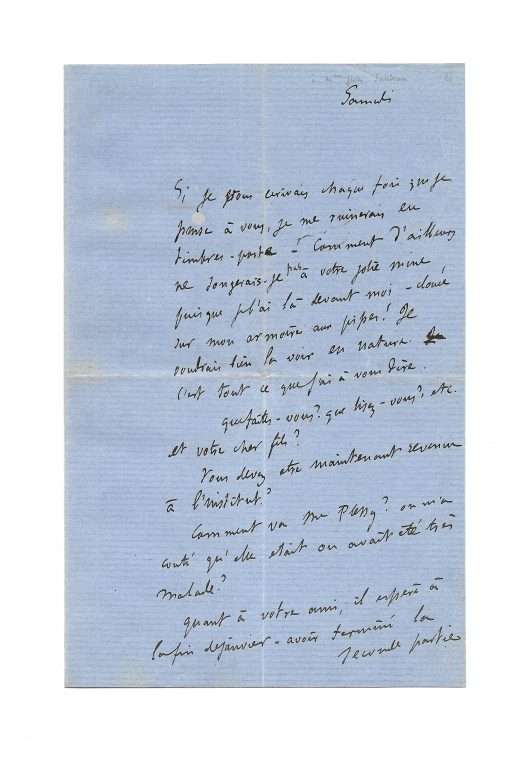 Samedi
Si je vous écrivais chaque fois que je
pense à vous, je me ruinerais en
timbres-poste ! Comment d'ailleurs
ne songerais-je pas à votre jolie mine
puisque je l'ai là devant moi - cloué
sur mon armoire aux pipes! Je
voudrais bien la voir en nature.
C'est tout ce que j'ai à vous dire.
que faites-vous? que lisez-vous?, etc.
et votre cher fils?
Vous devez etre maintenant revenue
à l'institut?
Comment va Me Plessy? on m'a
conté qu'elle etait ou avait été très
malade?
quant à votre ami, il espère à
la fin de janvier - avoir terminé la
seconde partie